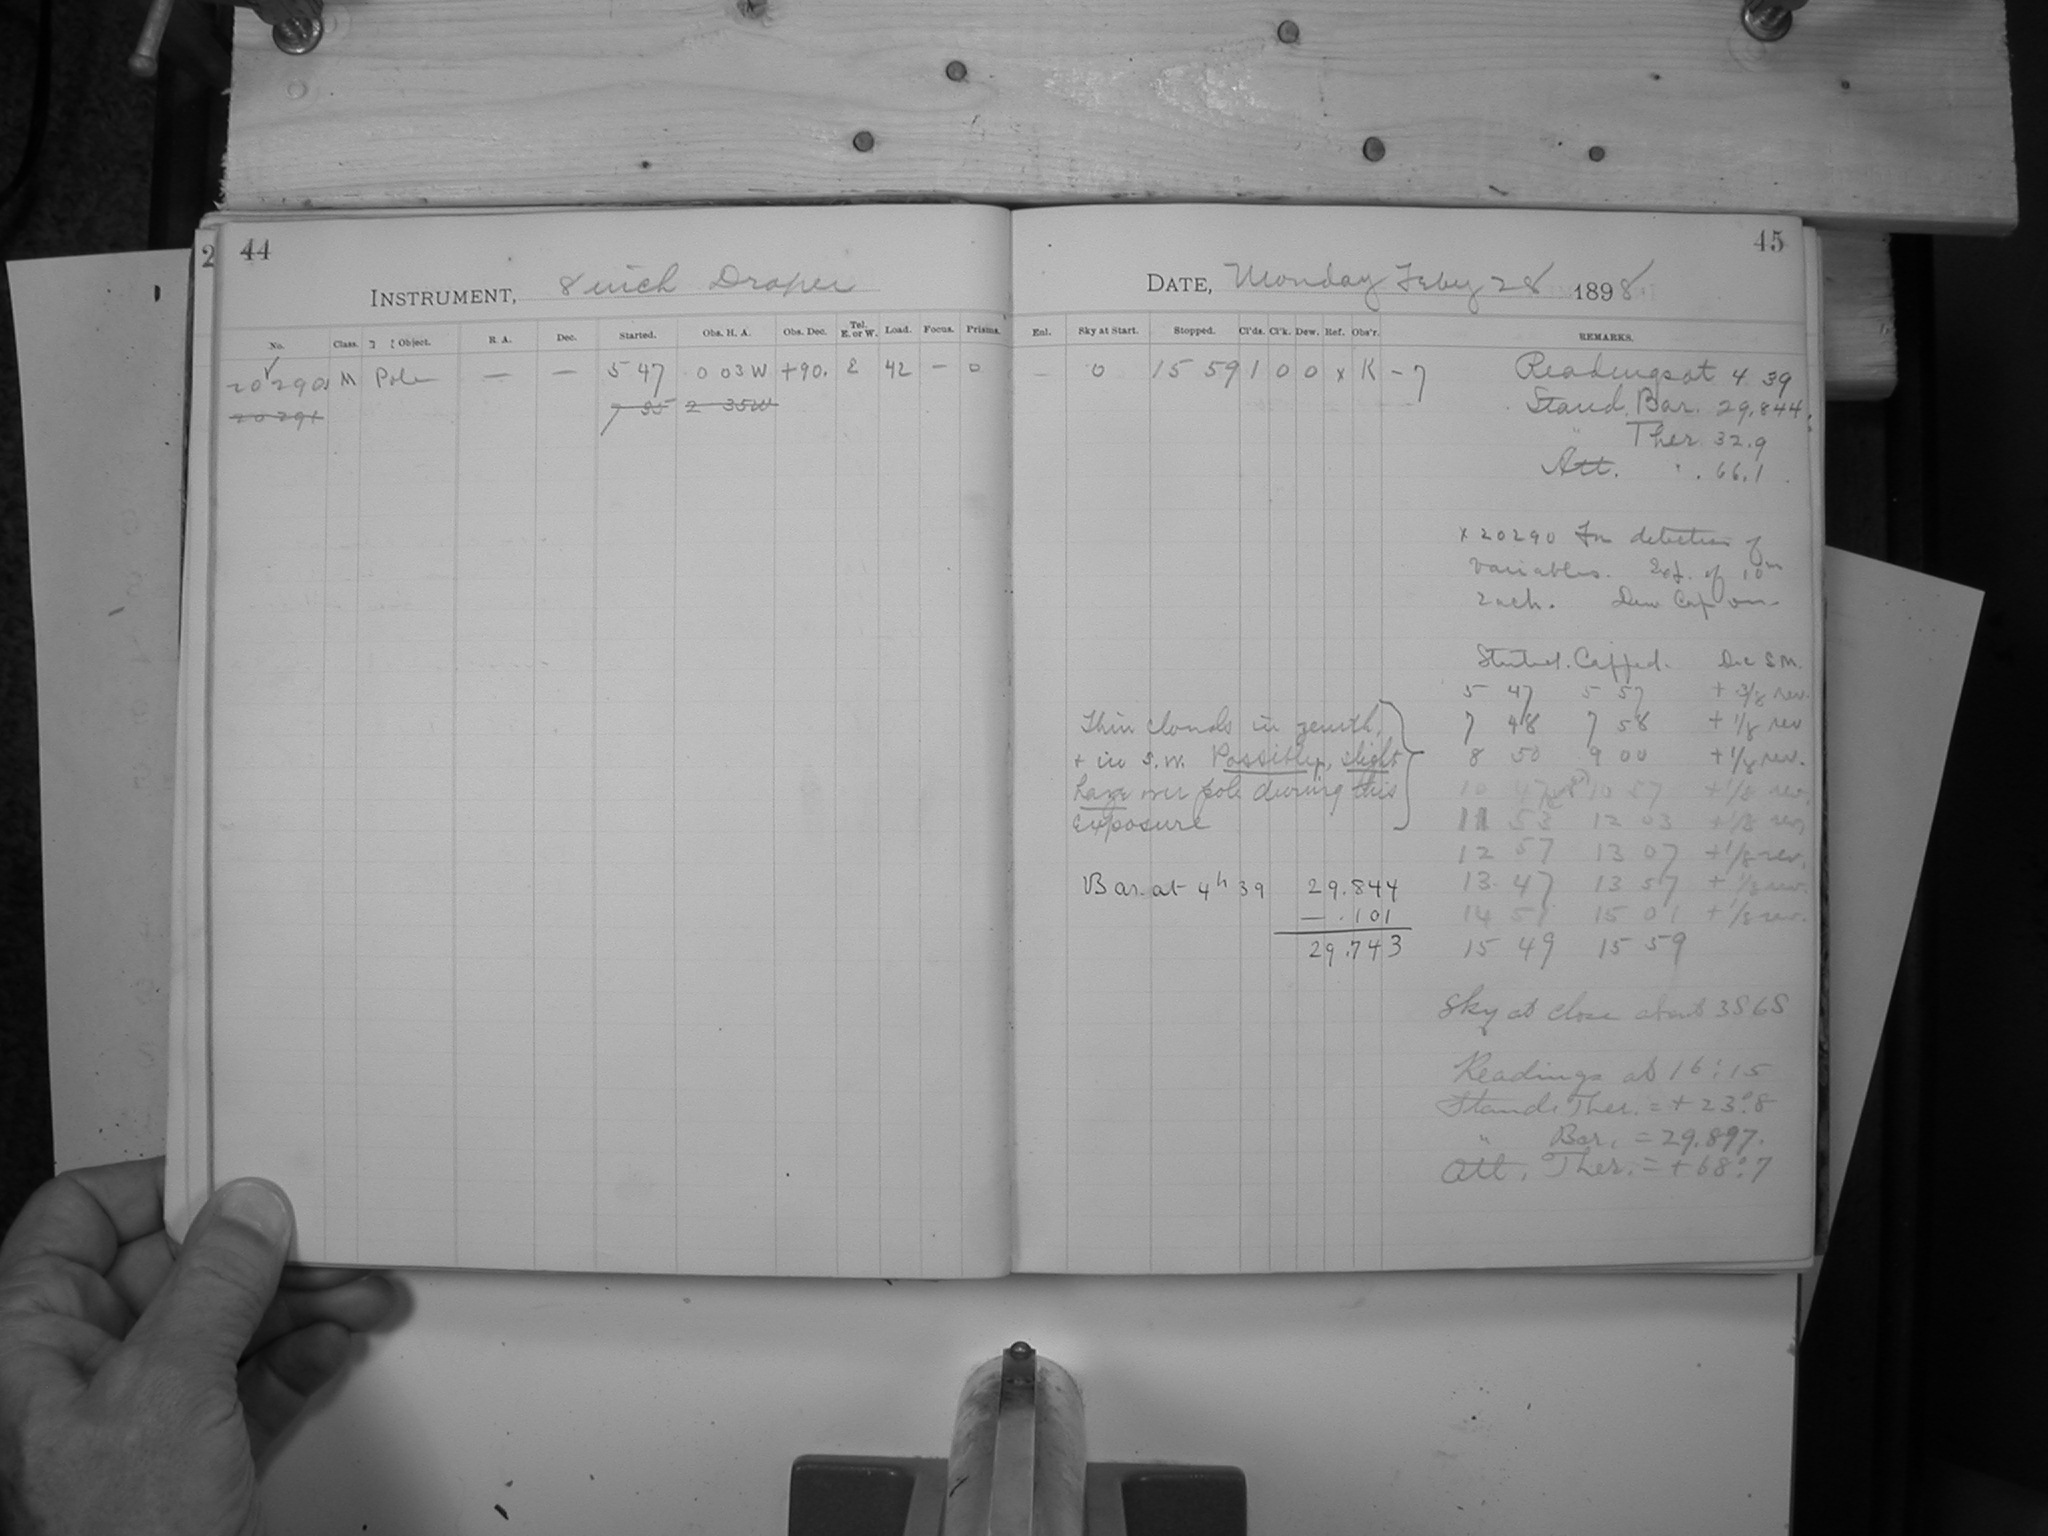 2 44
INSTRUMENT, 8 inch Draper
No. Class. Object. R. A. Dec. Started. Obs. H. A. Obs. Dec. Tel. E. or W. Load. Focus. Prisms.
20290 M Pole — — 5 47 0 03 W +90. E 42 – 0
20291 7 35 2 35W
45
DATE, Monday Feby 28 1898
Enl. Sky at Start. Stopped. Cl'ds. Cl'k. Dew. Ref. Obs'r. REMARKS.
– 0 15 59 1 0 0 x K – 7
Readings at 4 39
Stand. Bar. 29.844
" Ther. 32.9
Att. " 66.1
x 20290 For detection of
variables. Exp. of 10m
each. Dew Cap on
Started. Capped. Dec S.M.
5 47 5 57 + 3/8 rev.
7 48 7 58 + 1/8 rev
8 50 9 00 + 1/8 rev.
10 47 10 57 + 1/8 rev.
11 53 12 03 + 1/8 rev
12 57 13 07 + 1/8 rev.
13 47 13 57 + 1/8 rev.
14 51 15 01 + 1/8 rev.
15 49 15 59
Thin clouds in zenith,
+ in S.W. Possibly, slight
haze over pole during this
exposure
Bar. at 4h 39 29.844
— .101
29.743
Sky at close about 3S6S
Readings at 16:15
Stand. Ther. = + 23°.8
" Bar. = 29.897.
Att. Ther. = + 68°.7